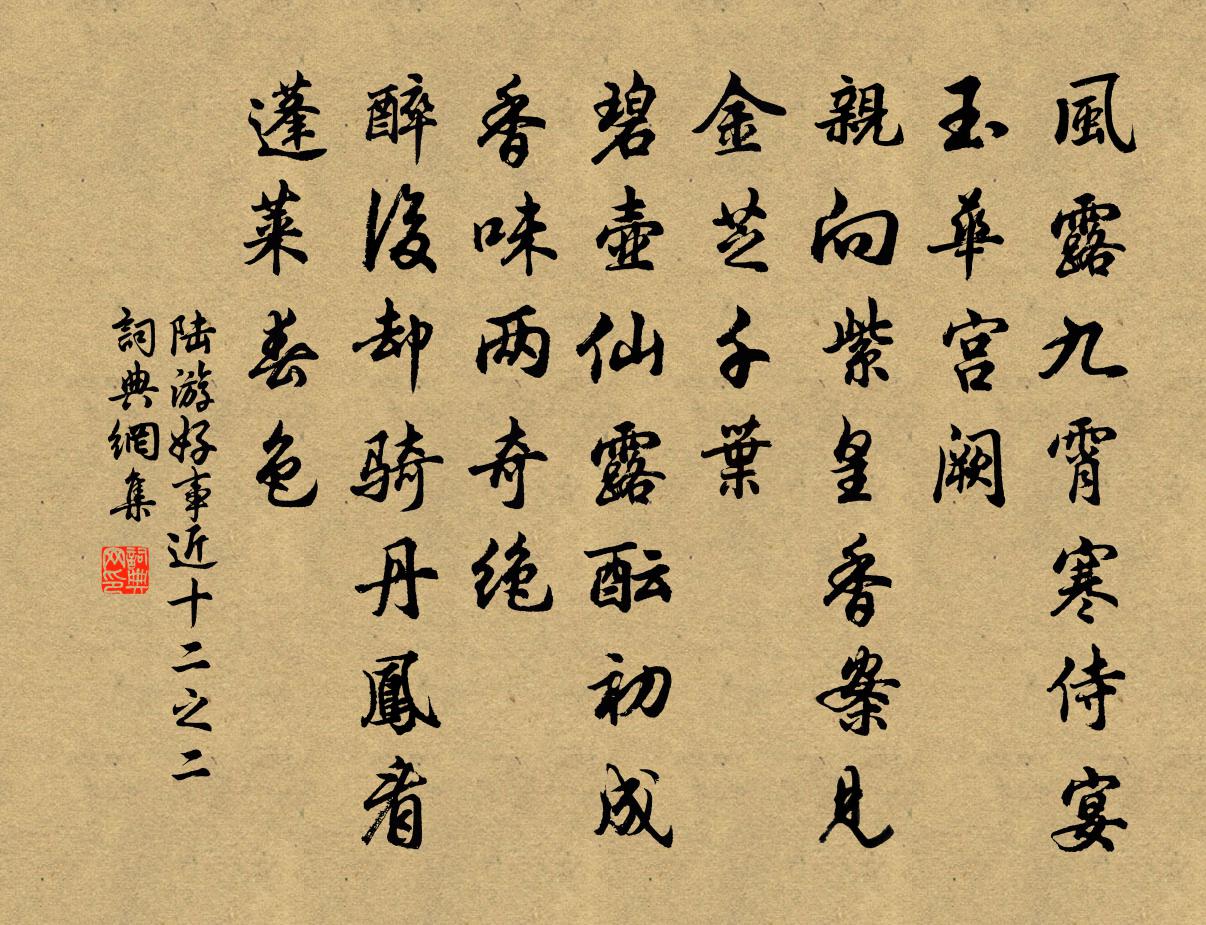 風露九霄寒侍宴
玉華宮闕
親向紫皇香案見
金芝千葉
碧壺仙露酝初成
香味两奇绝
醉後却骑丹鳳看
蓬莱春色
陆游好事近十二之二
詞典網集
詞典网印